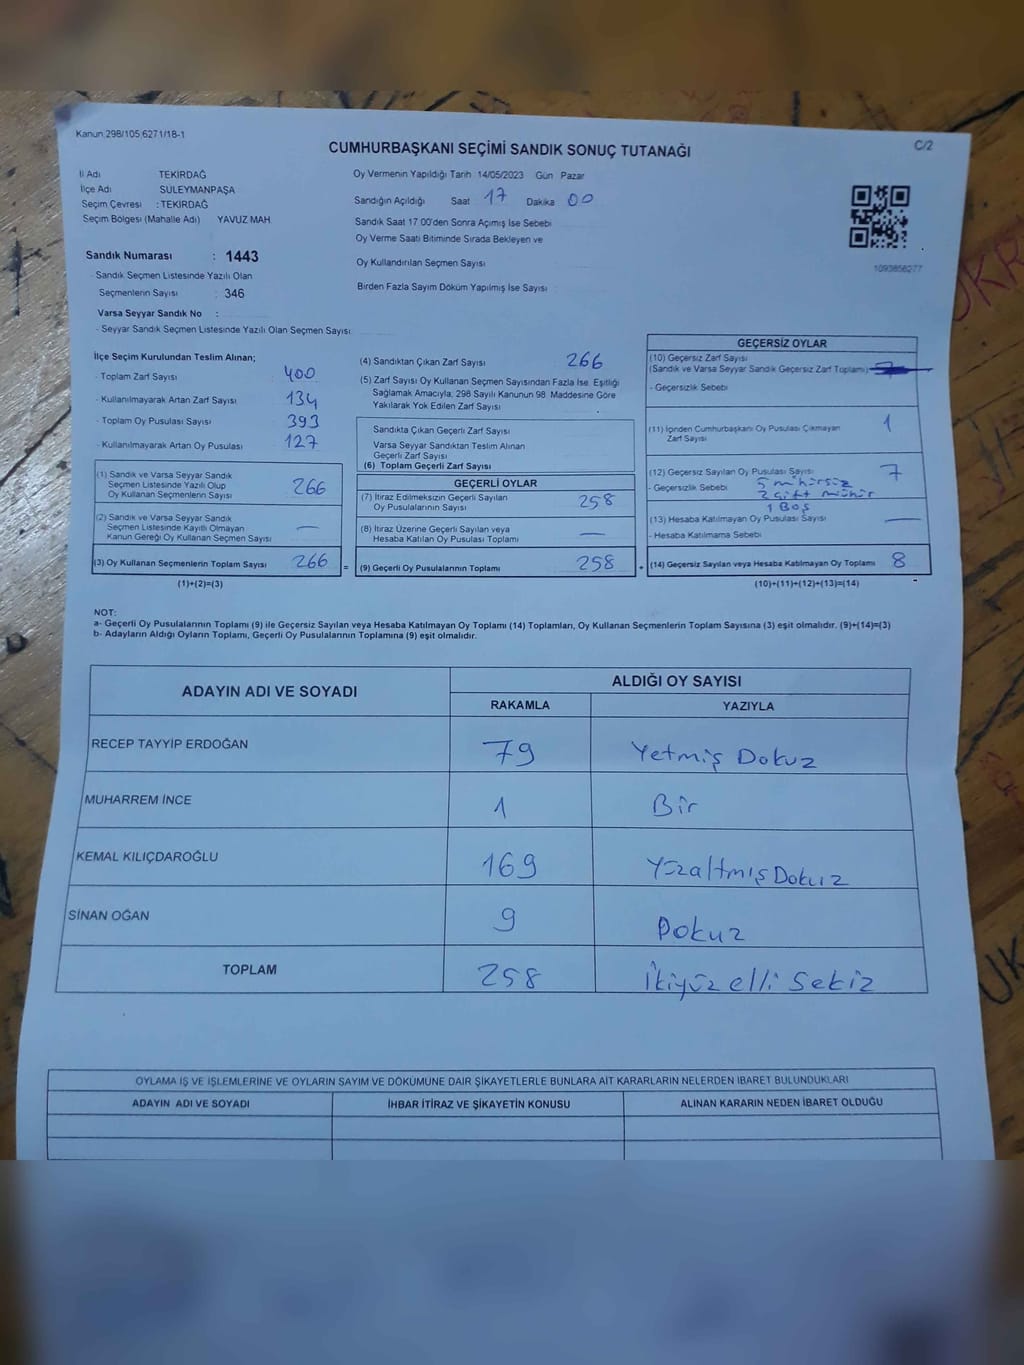 Kanun,298/105,6271/18-1
C/2
CUMHURBAŞKANI SEÇİMİ SANDIK SONUÇ TUTANAĞI
İl Adı TEKİRDAĞ
İlçe Adı SÜLEYMANPAŞA
Seçim Çevresi : TEKİRDAĞ
Seçim Bölgesi (Mahalle Adı) YAVUZ MAH.
Sandık Numarası : 1443
- Sandık Seçmen Listesinde Yazılı Olan
Seçmenlerin Sayısı : 346
Varsa Seyyar Sandık No :
- Seyyar Sandık Seçmen Listesinde Yazılı Olan Seçmen Sayısı
Oy Vermenin Yapıldığı Tarih 14/05/2023 Gün Pazar
Sandığın Açıldığı Saat 17 Dakika 00
Sandık Saat 17:00'den Sonra Açımış İse Sebebi
Oy Verme Saati Bitiminde Sırada Bekleyen ve
Oy Kullandırılan Seçmen Sayısı
Birden Fazla Sayım Döküm Yapılmış İse Sayısı
1093856277
İlçe Seçim Kurulundan Teslim Alınan;
- Toplam Zarf Sayısı 400
- Kullanılmayarak Artan Zarf Sayısı 134
- Toplam Oy Pusulası Sayısı 393
- Kullanılmayarak Artan Oy Pusulası 127
(1) Sandık ve Varsa Seyyar Sandık
Seçmen Listesinde Yazılı Olup
Oy Kullanan Seçmenlerin Sayısı 266
(2) Sandık ve Varsa Seyyar Sandık
Seçmen Listesinde Kayıtlı Olmayan
Kanun Gereği Oy Kullanan Seçmen Sayısı —
(3) Oy Kullanan Seçmenlerin Toplam Sayısı 266 =
(1)+(2)=(3)
(4) Sandıktan Çıkan Zarf Sayısı 266
(5) Zarf Sayısı Oy Kullanan Seçmen Sayısından Fazla İse, Eşitliği
Sağlamak Amacıyla, 298 Sayılı Kanunun 98. Maddesine Göre
Yakılarak Yok Edilen Zarf Sayısı
Sandıkta Çıkan Geçerli Zarf Sayısı
Varsa Seyyar Sandıktan Teslim Alınan
Geçerli Zarf Sayısı
(6) Toplam Geçerli Zarf Sayısı
GEÇERLİ OYLAR
(7) İtiraz Edilmeksizin Geçerli Sayılan
Oy Pusulalarının Sayısı 258
(8) İtiraz Üzerine Geçerli Sayılan veya
Hesaba Katılan Oy Pusulası Toplamı —
(9) Geçerli Oy Pusulalarının Toplamı 258 +
GEÇERSİZ OYLAR
(10) Geçersiz Zarf Sayısı
(Sandık ve Varsa Seyyar Sandık Geçersiz Zarf Toplamı)
- Geçersizlik Sebebi
(11) İçinden Cumhurbaşkanı Oy Pusulası Çıkmayan
Zarf Sayısı 1
(12) Geçersiz Sayılan Oy Pusulası Sayısı 7
- Geçersizlik Sebebi 5 mühürsüz
2 çift mühür
1 Boş
(13) Hesaba Katılmayan Oy Pusulası Sayısı —
- Hesaba Katılmama Sebebi
(14) Geçersiz Sayılan veya Hesaba Katılmayan Oy Toplamı 8
(10)+(11)+(12)+(13)=(14)
NOT:
a- Geçerli Oy Pusulalarının Toplamı (9) ile Geçersiz Sayılan veya Hesaba Katılmayan Oy Toplamı (14) Toplamları, Oy Kullanan Seçmenlerin Toplam Sayısına (3) eşit olmalıdır. (9)+(14)=(3)
b- Adayların Aldığı Oyların Toplamı, Geçerli Oy Pusulalarının Toplamına (9) eşit olmalıdır.
ADAYIN ADI VE SOYADI ALDIĞI OY SAYISI
RAKAMLA YAZIYLA
RECEP TAYYİP ERDOĞAN 79 Yetmiş Dokuz
MUHARREM İNCE 1 Bir
KEMAL KILIÇDAROĞLU 169 Yüzaltmış Dokuz
SİNAN OĞAN 9 Dokuz
TOPLAM 258 İkiyüz elli Sekiz
OYLAMA İŞ VE İŞLEMLERİNE VE OYLARIN SAYIM VE DÖKÜMÜNE DAİR ŞİKAYETLERLE BUNLARA AİT KARARLARIN NELERDEN İBARET BULUNDUKLARI
ADAYIN ADI VE SOYADI İHBAR İTİRAZ VE ŞİKAYETİN KONUSU ALINAN KARARIN NEDEN İBARET OLDUĞU